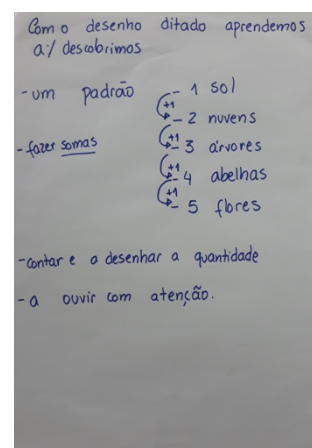 Com o desenho ditado aprendemos
a:/ descobrimos
- um padrão
- fazer somas
- 1 sol
+1
- 2 nuvens
+1
- 3 árvores
+1
- 4 abelhas
+1
- 5 flores
- contar e a desenhar a quantidade
- a ouvir com atenção.